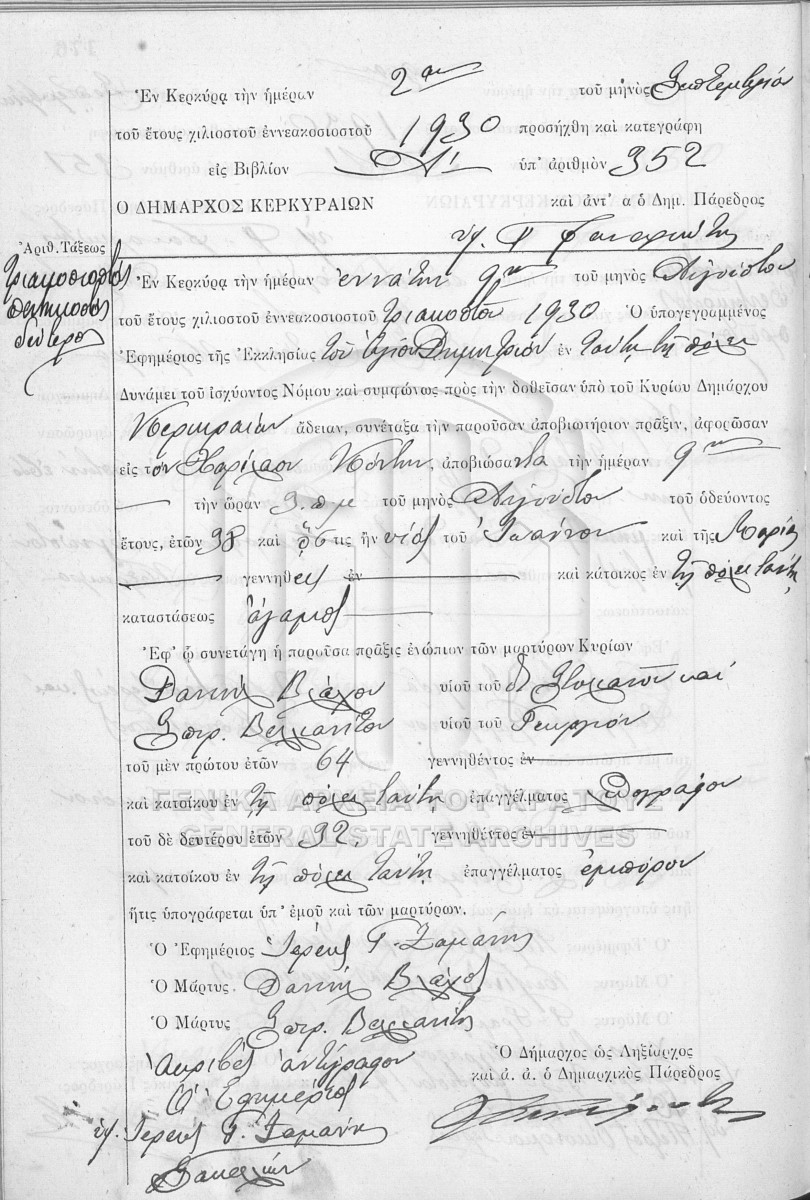 Ἐν Κερκύρᾳ τὴν ἡμέραν 2αν τοῦ μηνὸς Σεπτεμβρίου
τοῦ ἔτους χιλιοστοῦ ἐννεακοσιοστοῦ 1930 προσήχθη καὶ κατεγράφη
εἰς Βιβλίον Α΄ ὑπ' ἀριθμὸν 352
Ο ΔΗΜΑΡΧΟΣ ΚΕΡΚΥΡΑΙΩΝ καὶ ἀντ' α ὁ Δημ. Πάρεδρος
ὑπ.
Ἀριθ. Τάξεως
τριακοσιοστὸς
πεντηκοστὸς
δεύτερος
Ἐν Κερκύρᾳ τὴν ἡμέραν ἐννάτην 9ην τοῦ μηνὸς Αὐγούστου
τοῦ ἔτους χιλιοστοῦ ἐννεακοσιοστοῦ τριακοστοῦ 1930 Ὁ ὑπογεγραμμένος
Ἐφημέριος τῆς Ἐκκλησίας τοῦ Ἁγίου Δημητρίου ἐν ταύτῃ τῇ πόλει
Δυνάμει τοῦ ἰσχύοντος Νόμου καὶ συμφώνως πρὸς τὴν δοθεῖσαν ὑπὸ τοῦ Κυρίου Δημάρχου
Κερκυραίων ἄδειαν, συνέταξα τὴν παροῦσαν ἀποβιωτήριον πρᾶξιν, ἀφορῶσαν
εἰς τὸν Χαρίλαον ἀποβιώσαντα τὴν ἡμέραν 9ην
τὴν ὥραν 9. πμ τοῦ μηνὸς Αὐγούστου τοῦ ὁδεύοντος
ἔτους, ἐτῶν 38 καὶ ὅστις ἦν υἱὸς τοῦ Ἰωάννου καὶ τῆς Μαρίας
γεννηθεὶς ἐν καὶ κάτοικος ἐν τῇ πόλει ταύτῃ
καταστάσεως ἄγαμος
Ἐφ' ᾧ συνετάγη ἡ παροῦσα πρᾶξις ἐνώπιον τῶν μαρτύρων Κυρίων
Δανιὴλ Βλάχου υἱοῦ τοῦ καὶ
Σπυρ. Βελλιανίτου υἱοῦ τοῦ Γεωργίου
τοῦ μὲν πρώτου ἐτῶν 64 γεννηθέντος ἐν
καὶ κατοίκου ἐν τῇ πόλει ταύτῃ ἐπαγγέλματος
ΓΕΝΙΚΑ ΑΡΧΕΙΑ ΤΟΥ ΚΡΑΤΟΥΣ
GENERAL STATE ARCHIVES
τοῦ δὲ δευτέρου ἐτῶν 32, γεννηθέντος ἐν
καὶ κατοίκου ἐν τῇ πόλει ταύτῃ ἐπαγγέλματος ἐμπόρου
ἥτις ὑπογράφεται ὑπ' ἐμοῦ καὶ τῶν μαρτύρων.
Ὁ Ἐφημέριος Ἱερεὺς Γ. Σαμάνης
Ὁ Μάρτυς Δανιὴλ Βλάχος
Ὁ Μάρτυς Σπυρ. Βελλιανίτης
Ἀκριβὲς ἀντίγραφον
Ὁ Ἐφημέριος
ὑπ. Ἱερεὺς Γ. Σαμάνης
Ὁ Δήμαρχος ὡς Ληξίαρχος
καὶ ἀ. ἀ. ὁ Δημαρχικὸς Πάρεδρος